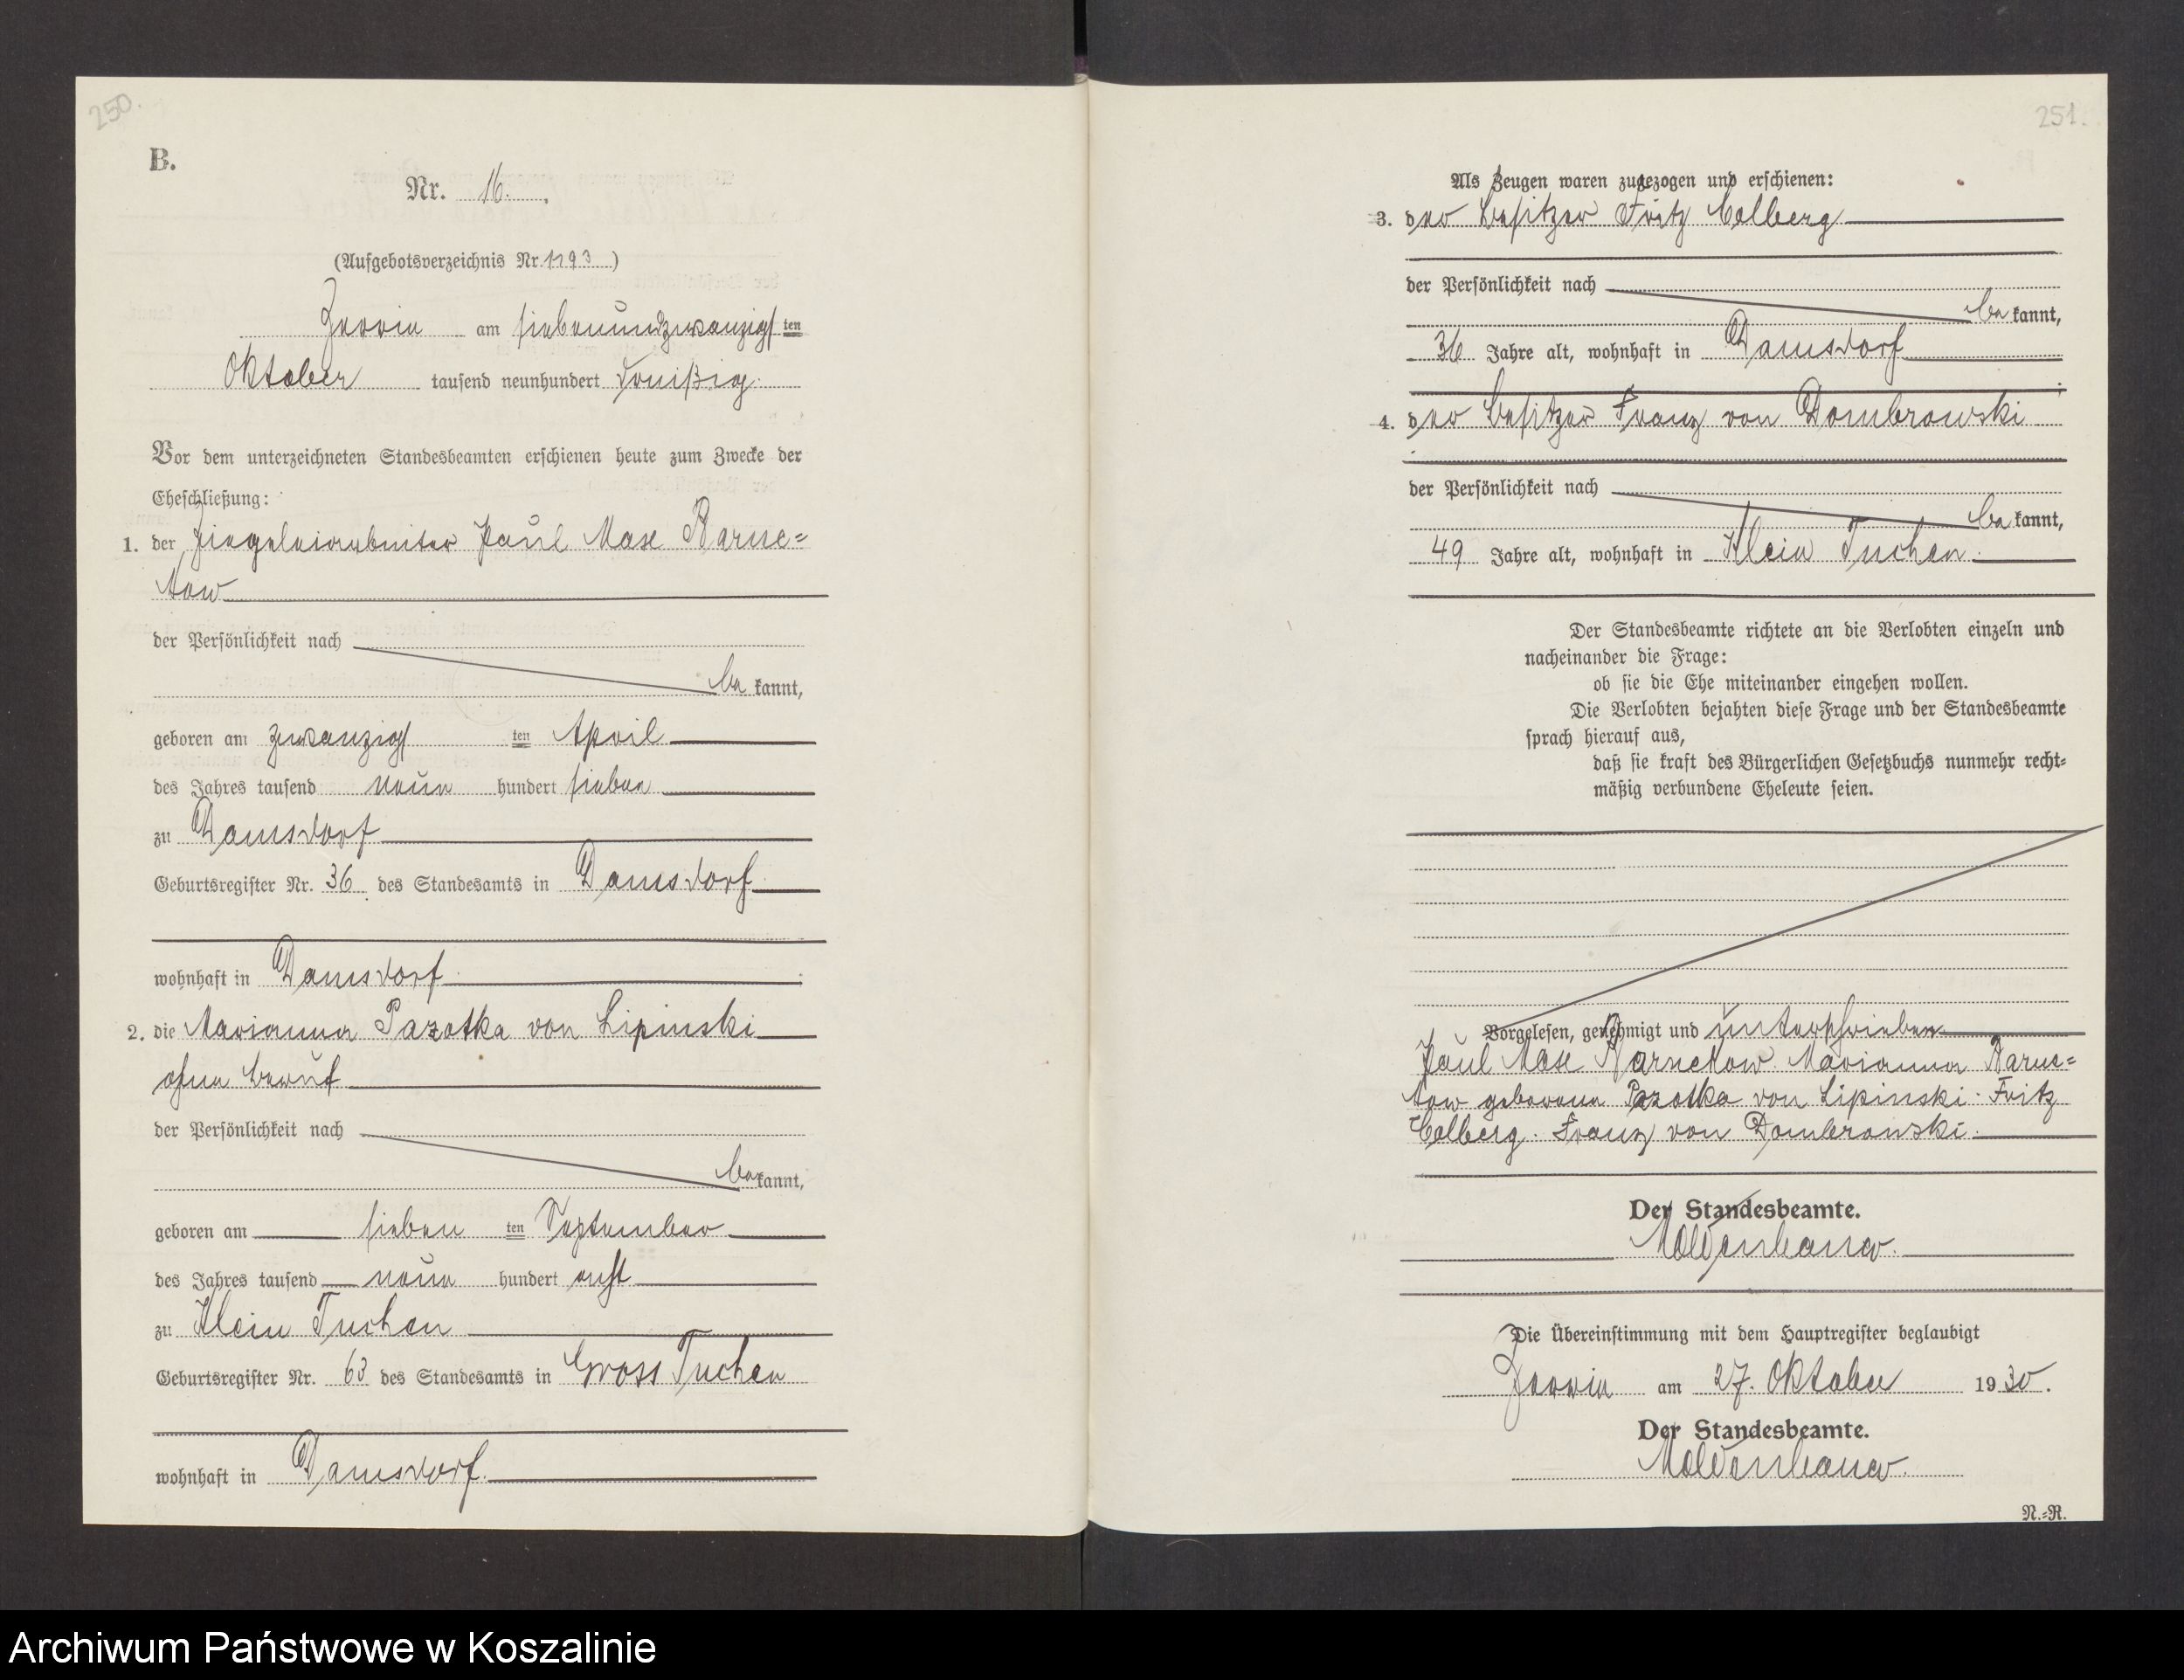 250.
B.
Nr. 16.
(Aufgebotsverzeichnis Nr. 1193)
Jerrin am siebenundzwanzigsten
Oktober tausend neunhundert dreißig.
Vor dem unterzeichneten Standesbeamten erschienen heute zum Zwecke der
Eheschließung:
1. der Ziegeleiarbeiter Paul Max Barne=
kow
der Persönlichkeit nach
be kannt,
geboren am zwanzigsten April
des Jahres tausend neun hundert sieben
zu Damsdorf
Geburtsregister Nr. 36 des Standesamts in Damsdorf
wohnhaft in Damsdorf.
2. die Marianna Pazatka von Lipinski
ohne Beruf
der Persönlichkeit nach
be kannt,
geboren am sieben ten September
des Jahres tausend neun hundert acht
zu Klein Tuchen
Geburtsregister Nr. 63 des Standesamts in Gross Tuchen
wohnhaft in Damsdorf.
251.
Als Zeugen waren zugezogen und erschienen:
3. der Besitzer Fritz Colberg
der Persönlichkeit nach
be kannt,
36 Jahre alt, wohnhaft in Damsdorf
4. der Besitzer Franz von Dombrowski
der Persönlichkeit nach
be kannt,
49 Jahre alt, wohnhaft in Klein Tuchen.
Der Standesbeamte richtete an die Verlobten einzeln und
nacheinander die Frage:
ob sie die Ehe miteinander eingehen wollen.
Die Verlobten bejahten diese Frage und der Standesbeamte
sprach hierauf aus,
daß sie kraft des Bürgerlichen Gesetzbuchs nunmehr recht=
mäßig verbundene Eheleute seien.
Vorgelesen, genehmigt und unterschrieben
Paul Max Barnekow. Marianna Barne=
kow geborene Pazatka von Lipinski. Fritz
Colberg. Franz von Dombrowski.
Der Standesbeamte.
Moldenhauer.
Die Übereinstimmung mit dem Hauptregister beglaubigt
Jerrin am 27. Oktober 1930.
Der Standesbeamte.
Moldenhauer.
N.=R.
Archiwum Państwowe w Koszalinie